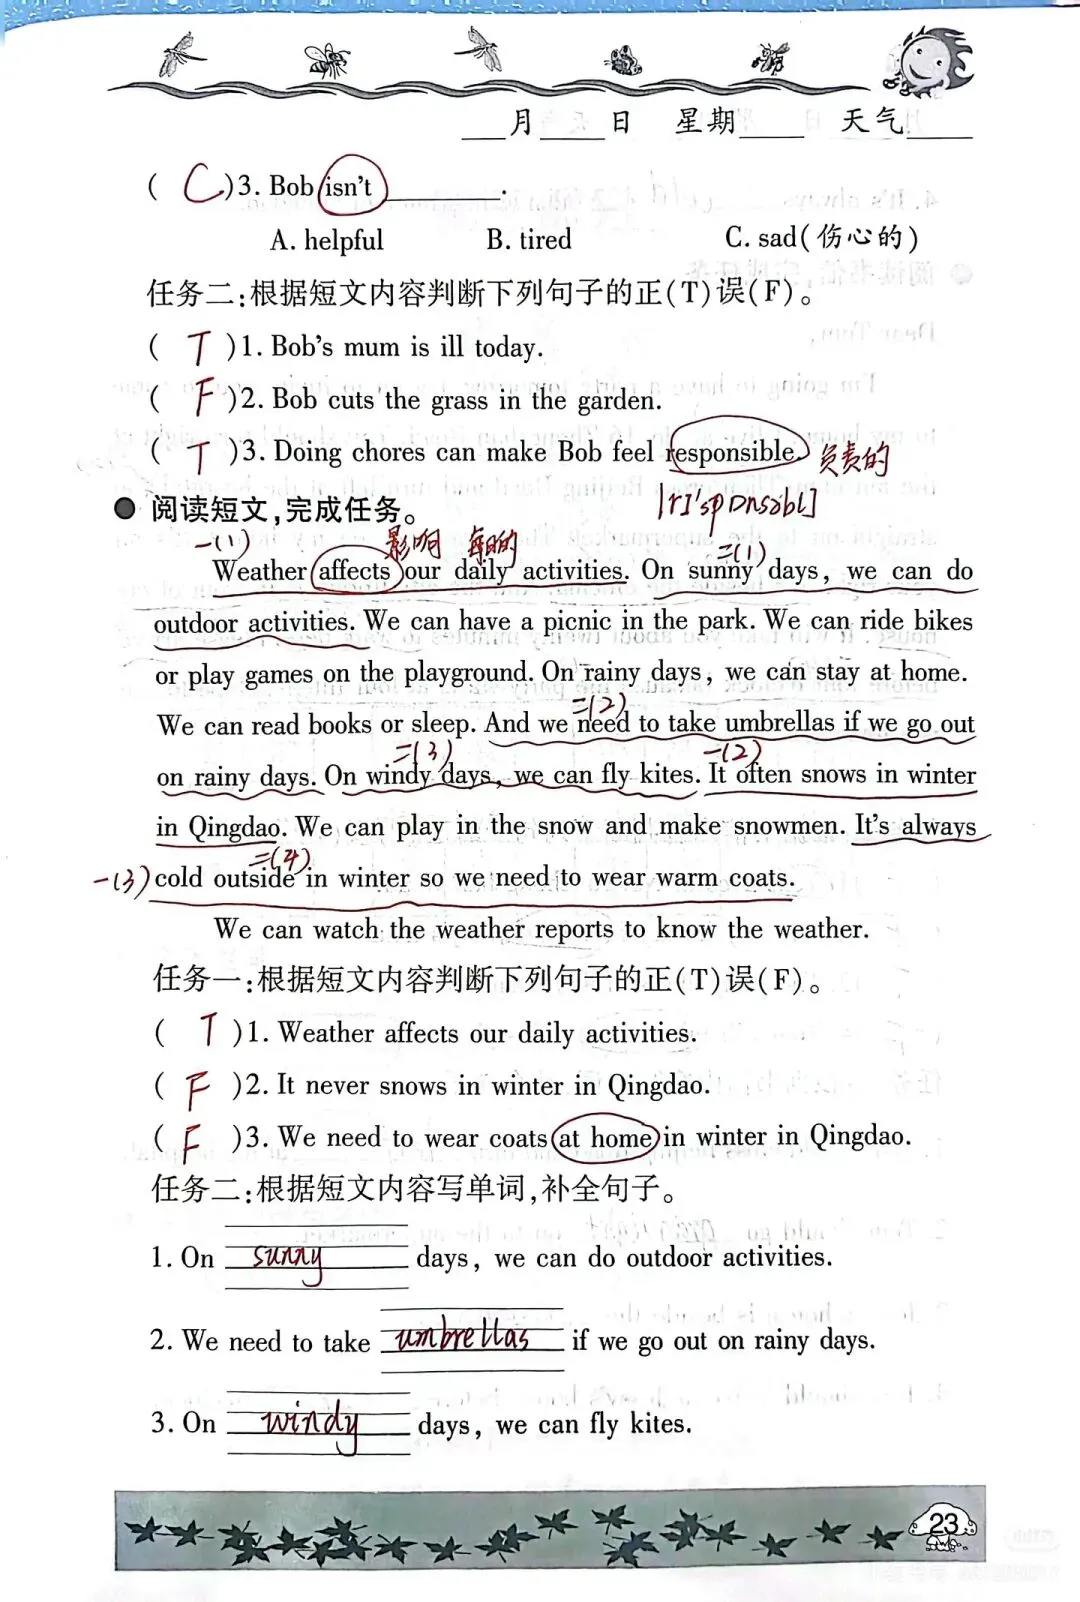 ___月____日 星期____ 天气____
( C )3. Bob isn't ________.
A. helpful B. tired C. sad(伤心的)
任务二:根据短文内容判断下列句子的正(T)误(F)。
( T )1. Bob's mum is ill today.
( F )2. Bob cuts the grass in the garden.
( T )3. Doing chores can make Bob feel responsible. 负责的
[rɪ'spɒnsəbl]
● 阅读短文,完成任务。
一(1) 影响 每日的 二(1)
Weather affects our daily activities. On sunny days, we can do
outdoor activities. We can have a picnic in the park. We can ride bikes
or play games on the playground. On rainy days, we can stay at home.
二(2)
We can read books or sleep. And we need to take umbrellas if we go out
二(3) 一(2)
on rainy days. On windy days, we can fly kites. It often snows in winter
in Qingdao. We can play in the snow and make snowmen. It's always
二(4)
一(3) cold outside in winter so we need to wear warm coats.
We can watch the weather reports to know the weather.
任务一:根据短文内容判断下列句子的正(T)误(F)。
( T )1. Weather affects our daily activities.
( F )2. It never snows in winter in Qingdao.
( F )3. We need to wear coats at home in winter in Qingdao.
任务二:根据短文内容写单词,补全句子。
1. On sunny days, we can do outdoor activities.
2. We need to take umbrellas if we go out on rainy days.
3. On windy days, we can fly kites.
23